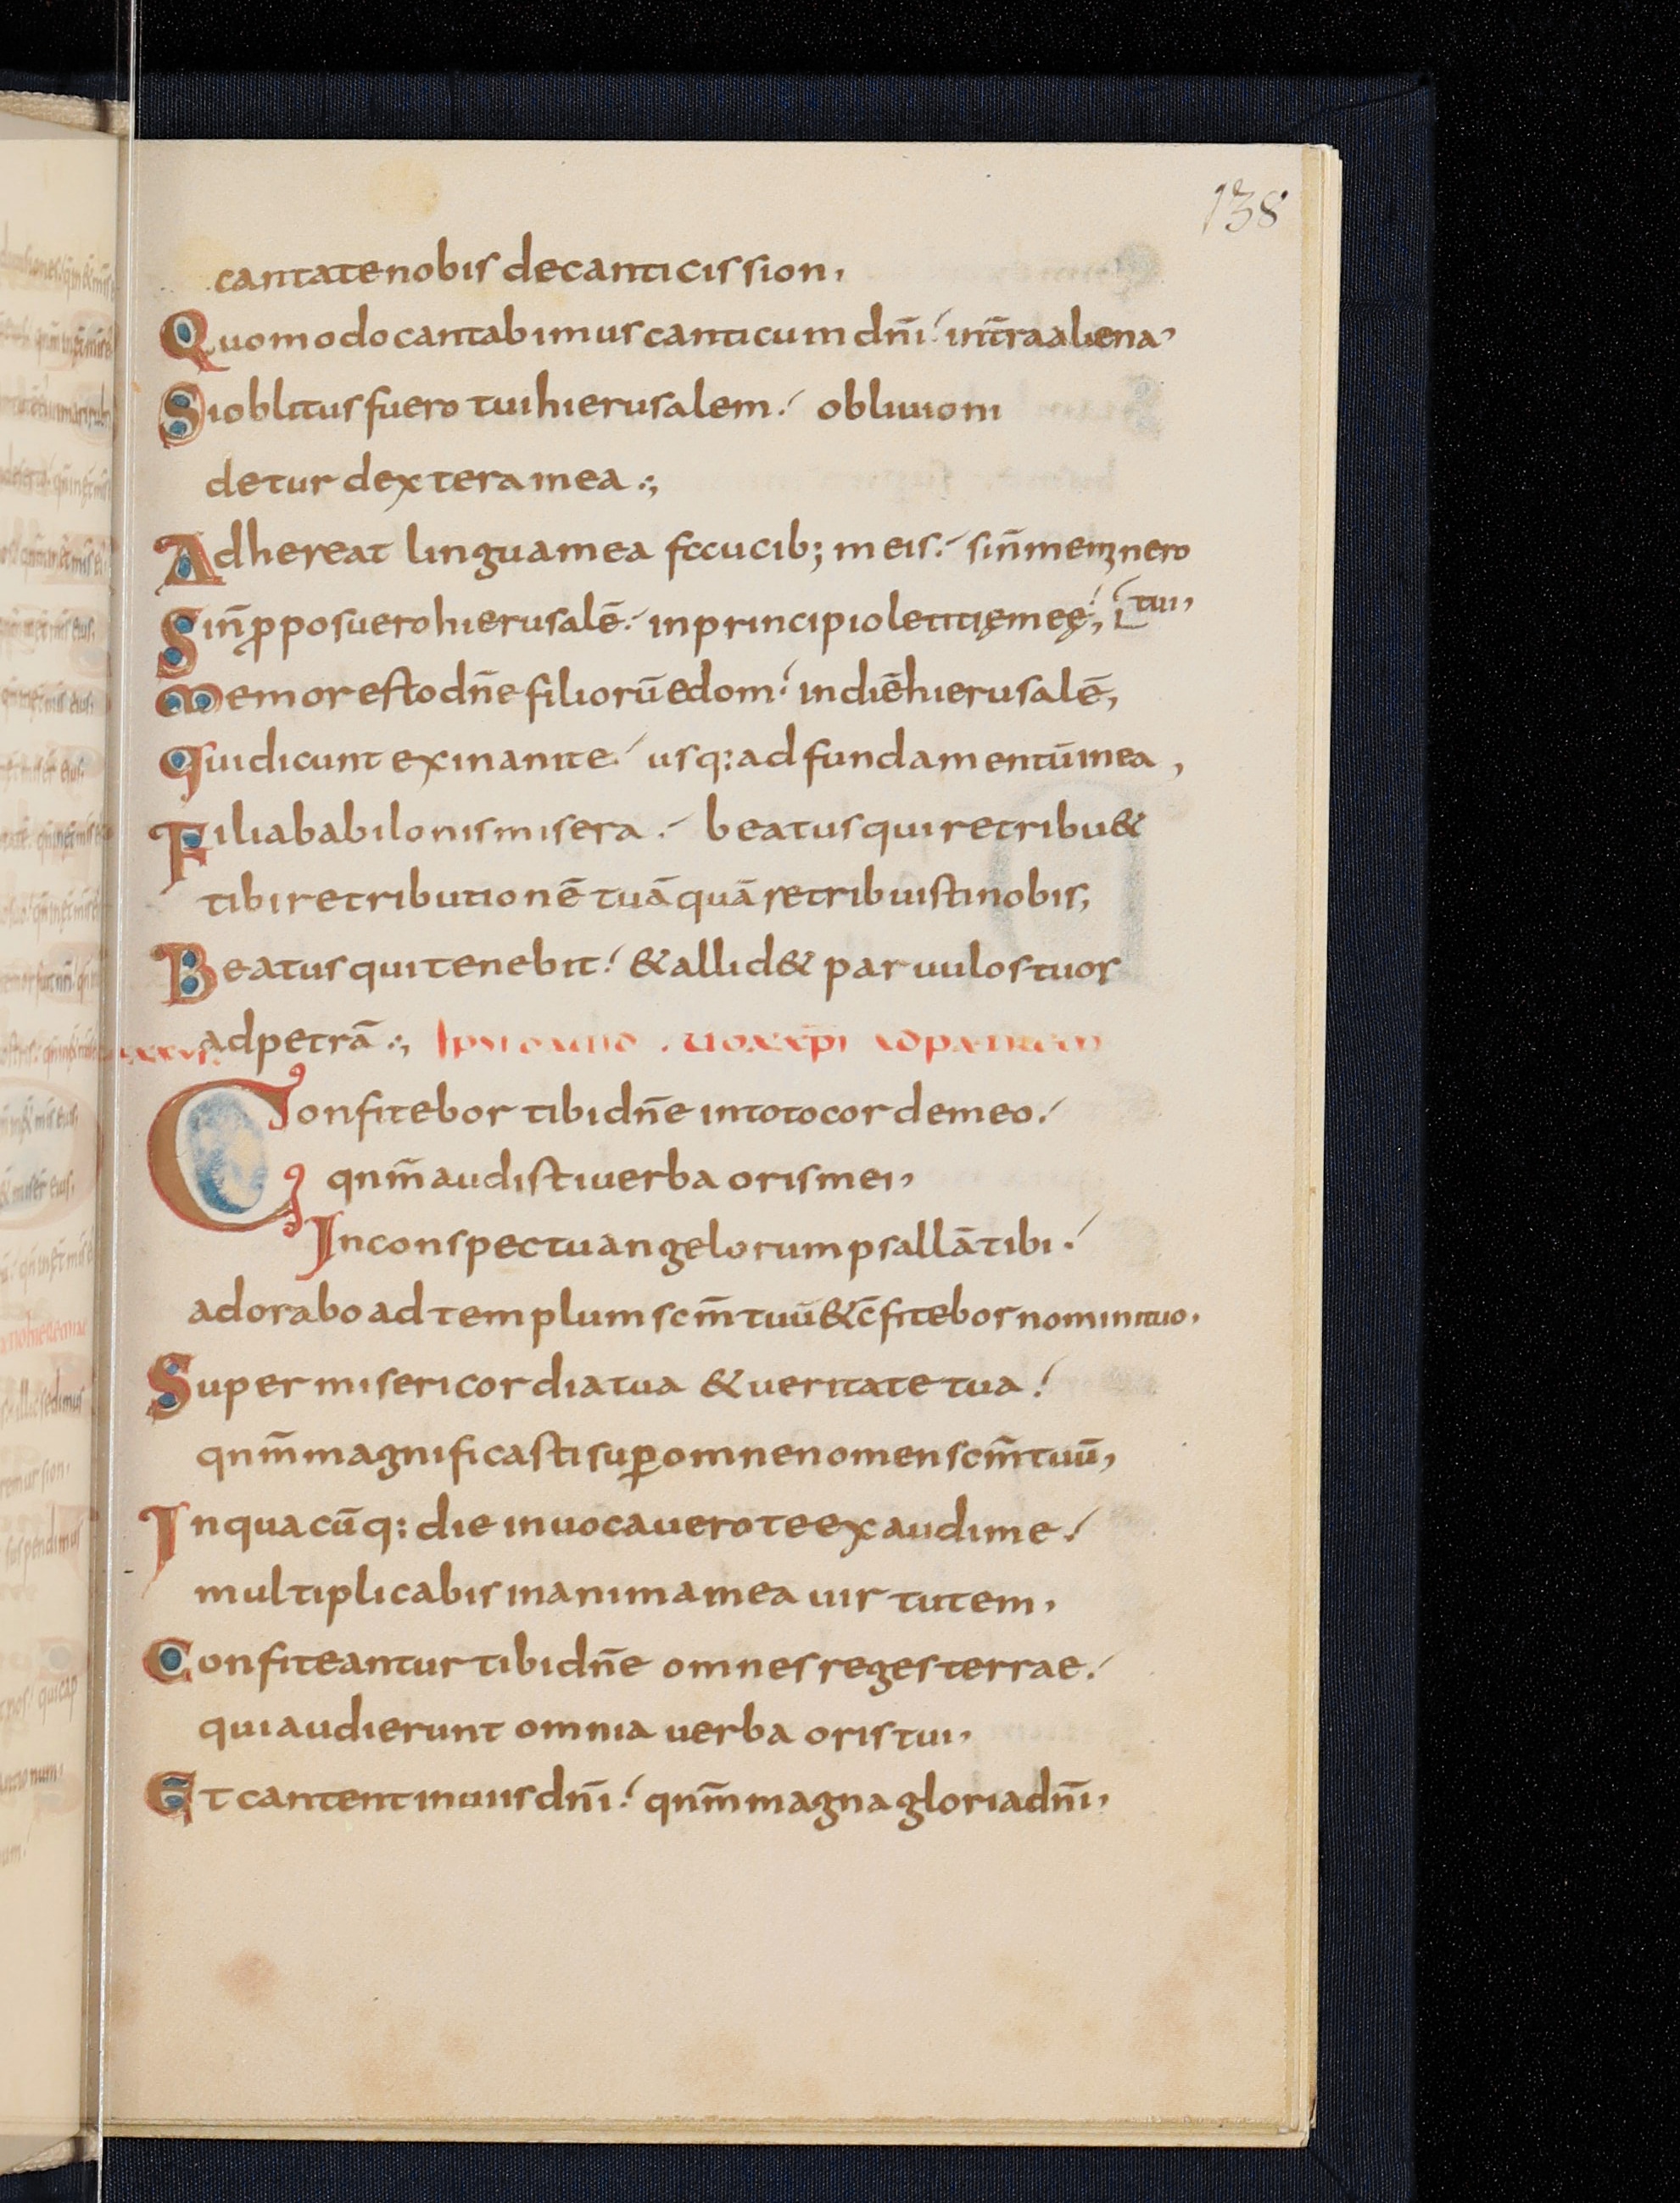 138
cantate nobis de canticis sion,
Quomodo cantabimus canticum dn̄i in t̄ra aliena,
Si oblitus fuero tui hierusalem. obliuioni
detur dextera mea.,
Adhereat lingua mea faucib; meis. si n̄ meminero
Si n̄ p̱posuero hierusalē. in principio letitię meę, tui,
Memor esto dn̄e filiorū edom. in diē hierusalē,
qui dicunt exinanite. usq: ad fundamentū in ea,
Filia babilonis misera. beatus qui retribu&
tibi retributionē tuā quā retribuisti nobis,
Beatus qui tenebit. & allid& paruulos tuos
ad petrā.,
Confitebor tibi dn̄e in toto corde meo.
qnm̄ audisti uerba oris mei,
In conspectu angelorum psallā tibi.
adorabo ad templum scm̄ tuū & c̄fitebor nomini tuo,
Super misericordia tua & ueritate tua.
qnm̄ magnificasti sup̱ omne nomen scm̄ tuū,
In quacūq: die inuocauero te exaudi me.
multiplicabis in anima mea uirtutem,
Confiteantur tibi dn̄e omnes reges terrae.
qui audierunt omnia uerba oris tui,
Et cantent in uiis dn̄i. qnm̄ magna gloria dn̄i,